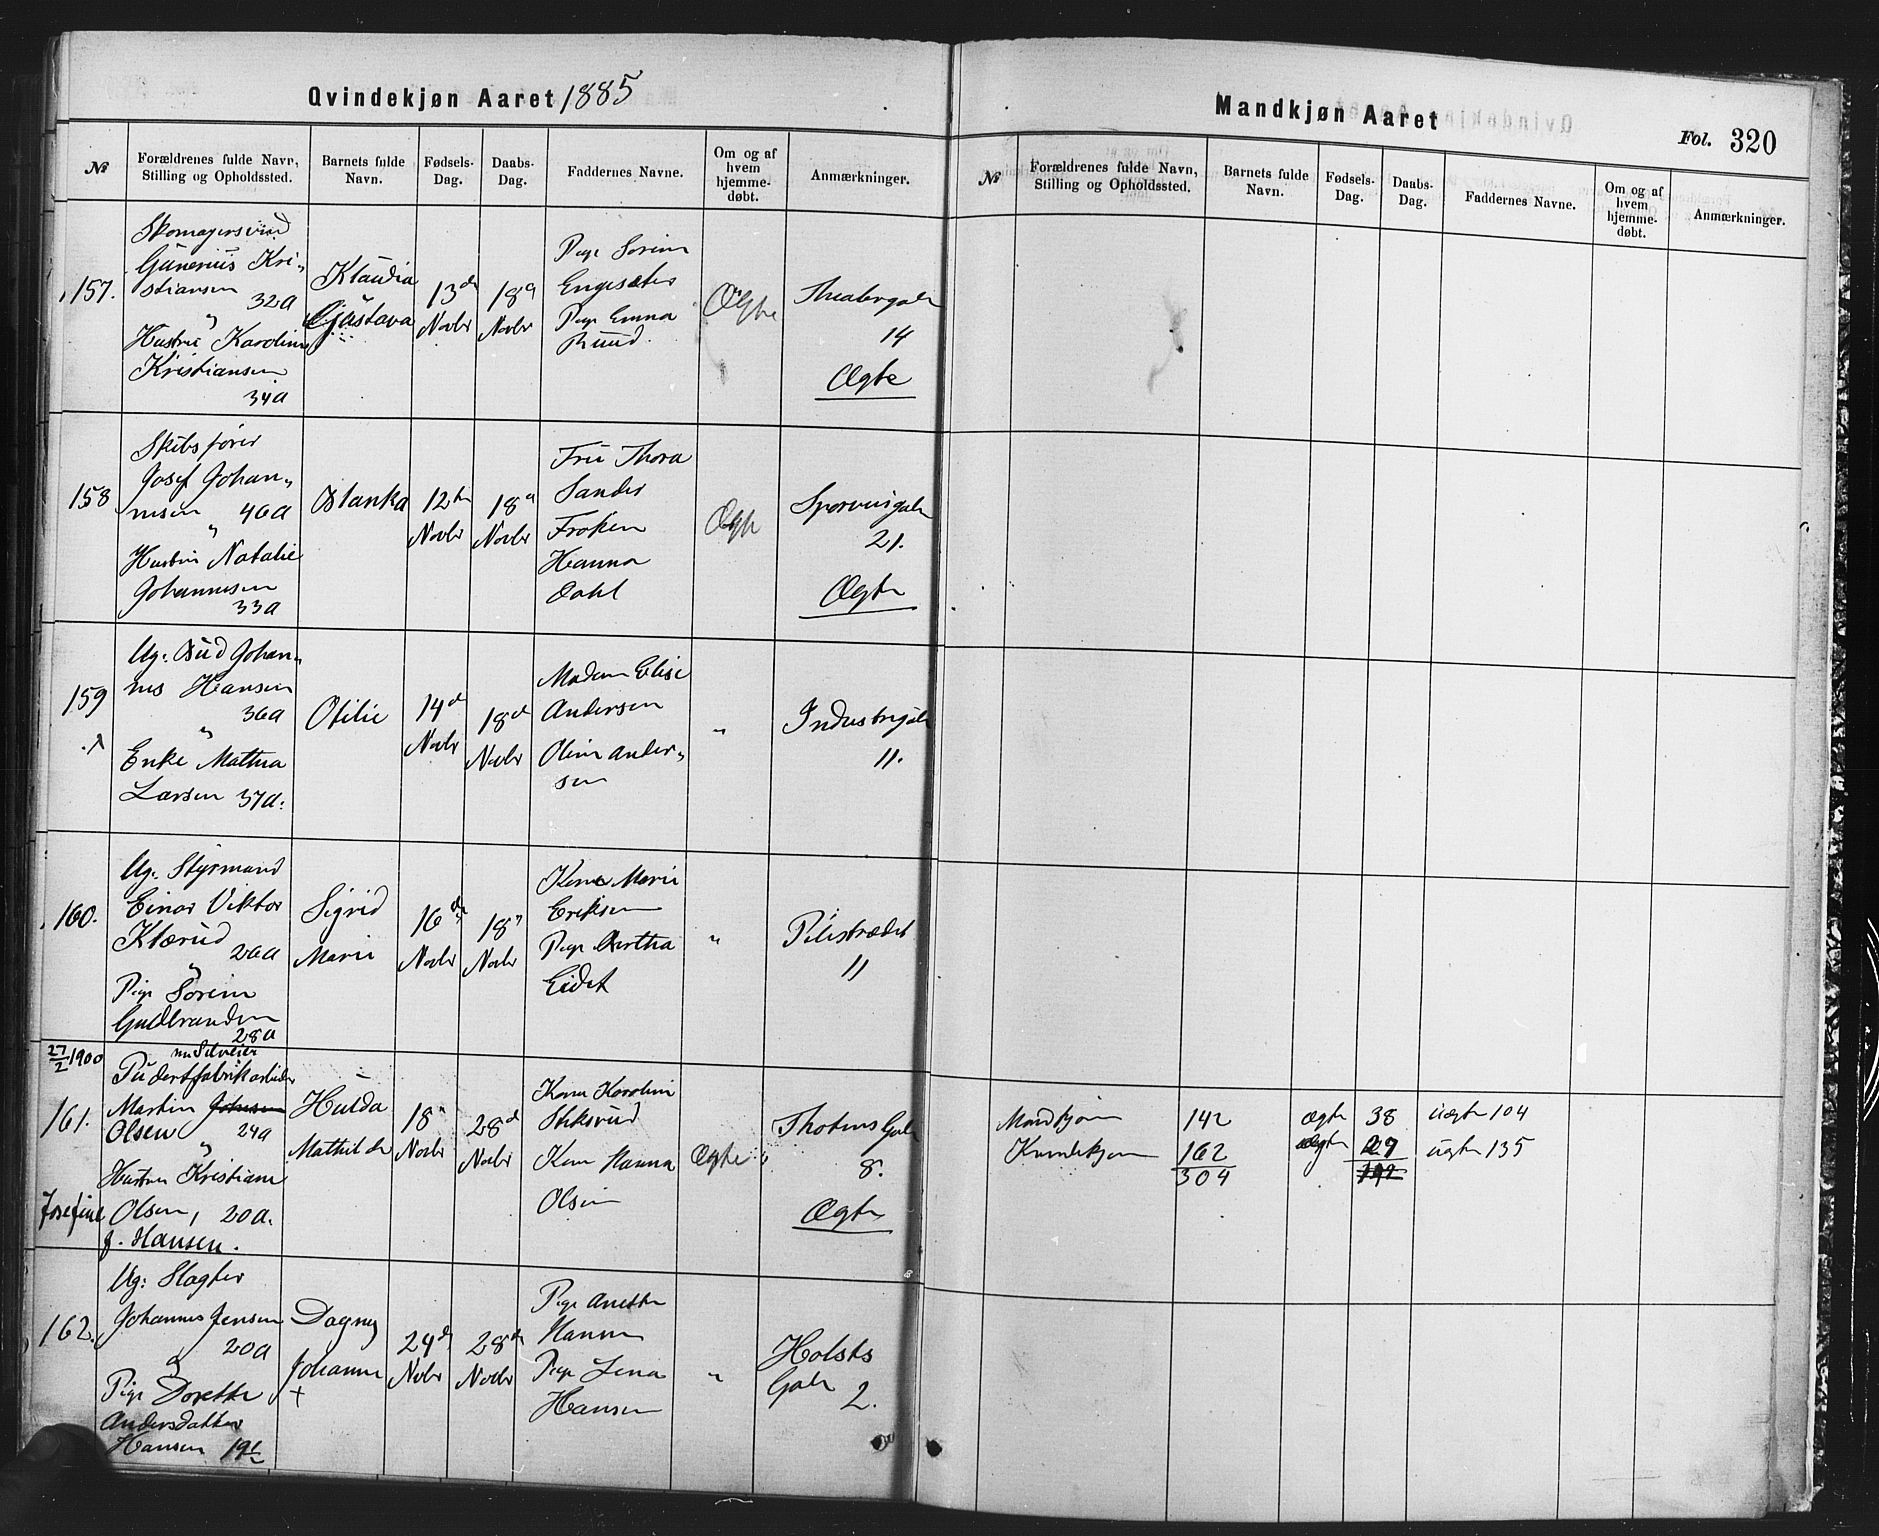 Qvindekjøn Aaret 1885
№
Forældrenes fulde Navn, Stilling og Opholdssted.
Barnets fulde Navn.
Fødsels-Dag.
Daabs-Dag.
Faddernes Navne.
Om og af hvem hjemme-døbt.
Anmærkninger.
157.
Skomagersvend
Gunerius Kri-
stiansen
32a
Hustru Karoline
Kristiansen
34a
Klaudia
Gustava
13d
Novbr
18d
Novbr
Pige Sorine
Engesæter
Pige Emma
Ruud.
Ægte
Theatergaden
14
Ægte
158
Skibsfører
Josef Johan-
nesen 46a
Hustru Natalie
Johannesen
33a
Blanka
12te
Novbr
18d
Novbr
Fru Thora
Sander
Frøken
Hanna
Dahl
Ægte
21.
Ægte
159
Ug: Bud Johan-
nes Hansen
36a
Enke Mathea
Larsen 37a.
Otilie
14d
Novbr
18d
Novbr
Madam Elise
Andersen
Oline Ander-
sen
"
Industrigaden
11.
160.
Ug: Styrmand
Einar Viktor
Klærud
26a
Pige Sorine
Gulbrandsen
28a
Sigrid
Marie
16de
Novbr
18d
Novbr
Kone Marie
Eriksen
Pige Bertha
Eidet
"
Pilestrædet
11
27/2 1900
161.
nu Selveier
Pudertfabrikarbeider
Martin Johnsen
Olsen 24a
Hustru Kristiane
Josefine Olsen, 20a.
f. Hansen.
Hulda
Mathilde
18d
Novbr
28d
Novbr
Kone Karoline
Kone Hanna
Olsen
Ægte
Thotens Gade
8.
Ægte
162.
Ug: Slagter
Johannes Jensen
20a
Pige Dorethe
Andersdatter
Hansen 19½
Dagny
Johanne
+
24d
Novbr
28d
Novbr
Pige Anette
Pige Lena
Hansen
"
Holsts
Gade
2.
Mandkjøn Aaret
Fol. 320
№
Forældrenes fulde Navn, Stilling og Opholdssted.
Barnets fulde Navn.
Fødsels-Dag.
Daabs-Dag.
Faddernes Navne.
Om og af hvem hjemme-døbt.
Anmærkninger.
Mandkjøn 142 Ægte 38 uægte 104
Kvindekjøn 162 Ægte 27 uægte 135
304